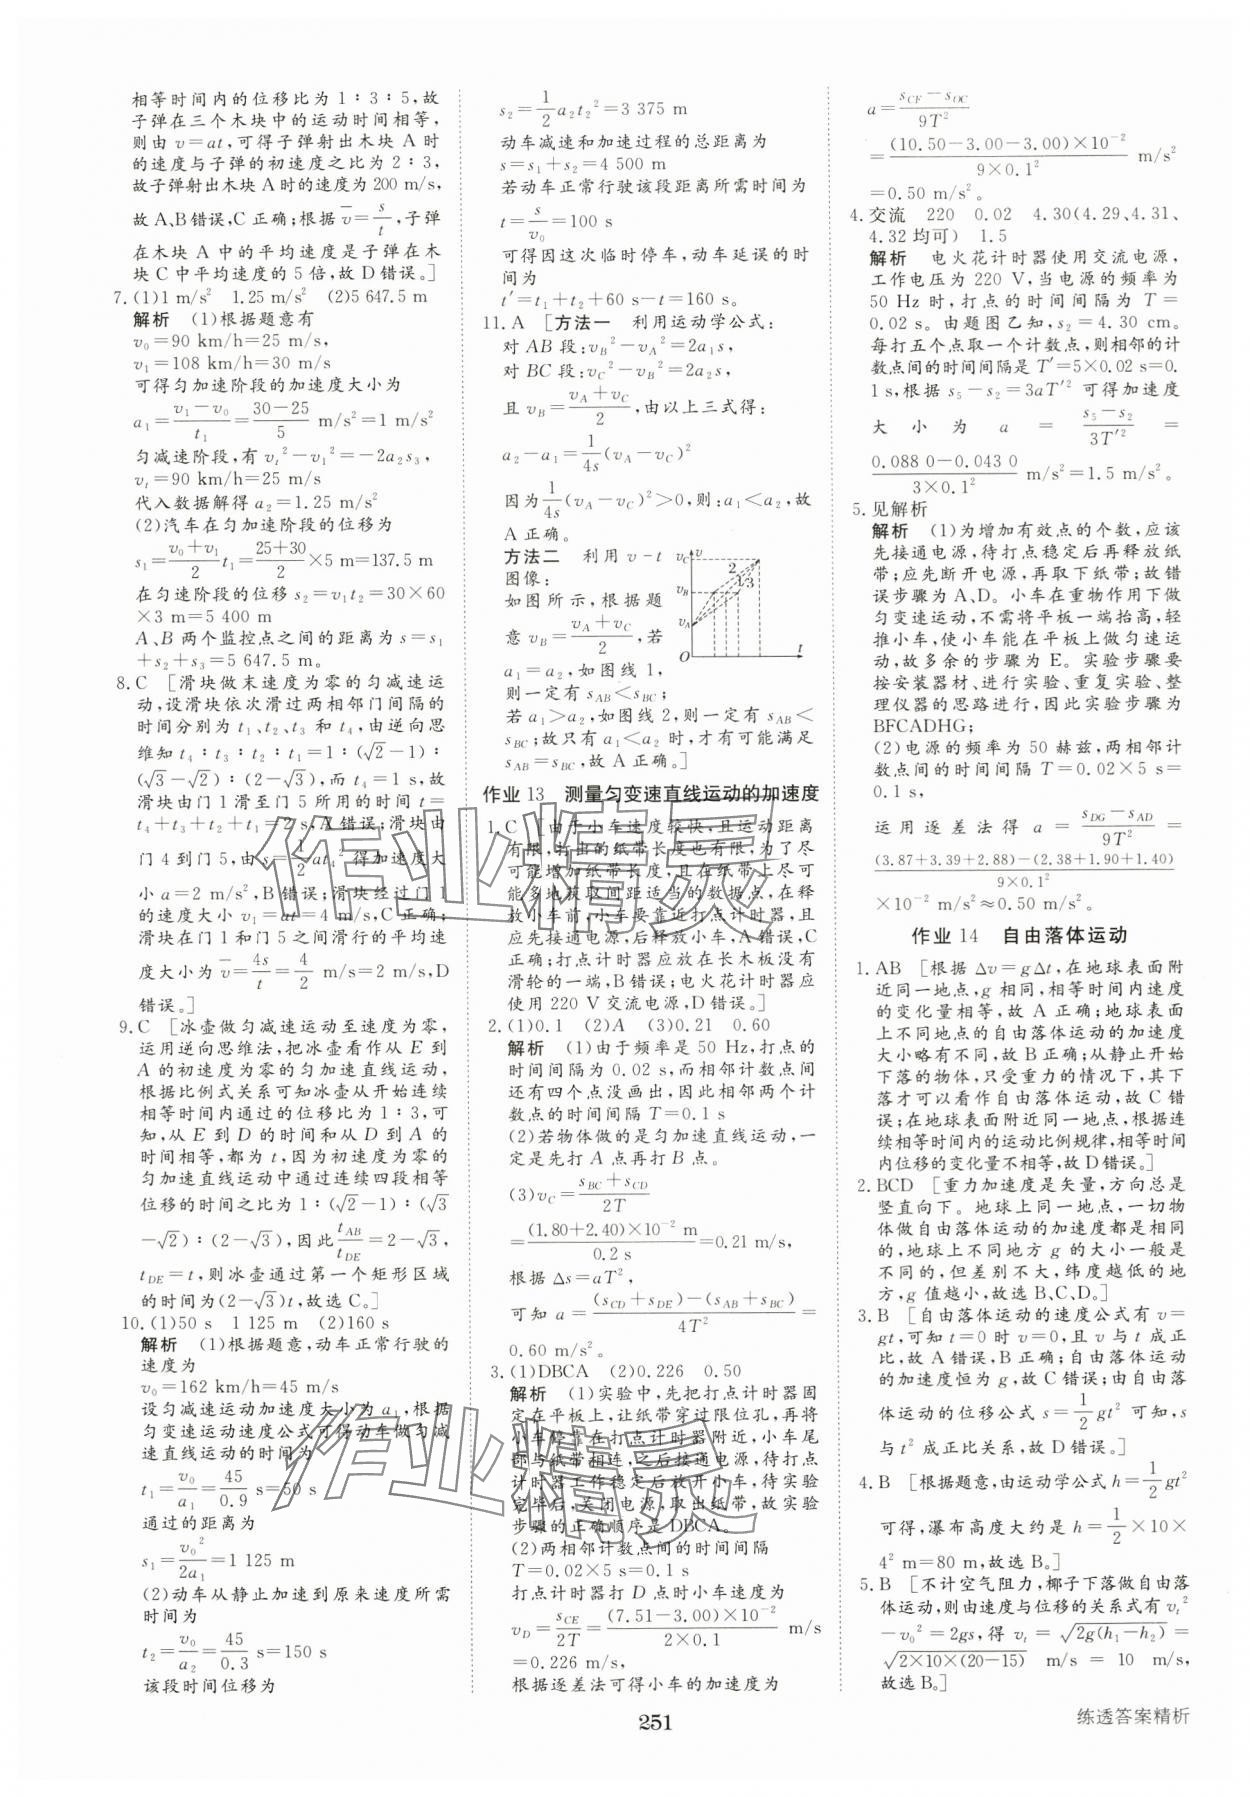 相等时间内的位移比为 1∶3∶5,故
子弹在三个木块中的运动时间相等,
则由 v=at,可得子弹射出木块 A 时
的速度与子弹的初速度之比为 2∶3,
故子弹射出木块 A 时的速度为 200 m/s,
故 A、B 错误,C 正确;根据 v̄=s/t,子弹
在木块 A 中的平均速度是子弹在木
块 C 中平均速度的 5 倍,故 D 错误。]
7. (1)1 m/s² 1.25 m/s² (2)5 647.5 m
解析 (1)根据题意有
v₀=90 km/h=25 m/s,
v₁=108 km/h=30 m/s
可得匀加速阶段的加速度大小为
a₁=(v₁-v₀)/t₁=(30-25)/5 m/s²=1 m/s²
匀减速阶段,有 vₜ²-v₁²=-2a₂s₃,
vₜ=90 km/h=25 m/s
代入数据解得 a₂=1.25 m/s²
(2)汽车在匀加速阶段的位移为
s₁=(v₀+v₁)/2 t₁=(25+30)/2×5 m=137.5 m
在匀速阶段的位移 s₂=v₁t₂=30×60
×3 m=5 400 m
A、B 两个监控点之间的距离为 s=s₁
+s₂+s₃=5 647.5 m。
8. C [滑块做末速度为零的匀减速运
动,设滑块依次滑过两相邻门间隔的
时间分别为 t₁、t₂、t₃ 和 t₄,由逆向思
维知 t₄∶t₃∶t₂∶t₁=1∶(√2-1)∶
(√3-√2)∶(2-√3),而 t₄=1 s,故
滑块由门 1 滑至门 5 所用的时间 t=
t₄+t₃+t₂+t₁=2 s,A 错误;滑块由
门 4 到门 5,由 s=1/2 at₄² 得加速度大
小 a=2 m/s²,B 错误;滑块经过门 1
的速度大小 v₁=at=4 m/s,C 正确;
滑块在门 1 和门 5 之间滑行的平均速
度大小为 v̄=4s/t=4/2 m/s=2 m/s,D
错误。]
9. C [冰壶做匀减速运动至速度为零,
运用逆向思维法,把冰壶看作从 E 到
A 的初速度为零的匀加速直线运动,
根据比例式关系可知冰壶从开始连续
相等时间内通过的位移比为 1∶3,可
知,从 E 到 D 的时间和从 D 到 A 的
时间相等,都为 t,因为初速度为零的
匀加速直线运动中通过连续四段相等
位移的时间之比为 1∶(√2-1)∶(√3
-√2)∶(2-√3),因此 t_AB/t_DE=2-√3,
t_DE=t,则冰壶通过第一个矩形区域
的时间为(2-√3)t,故选 C。]
10. (1)50 s 1 125 m (2)160 s
解析 (1)根据题意,动车正常行驶的
速度为
v₀=162 km/h=45 m/s
设匀减速运动加速度大小为 a₁,根据
匀变速运动速度公式可得动车做匀减
速直线运动的时间为
t₁=v₀/a₁=45/0.9 s=50 s
通过的距离为
s₁=v₀²/2a₁=1 125 m
(2)动车从静止加速到原来速度所需
时间为
t₂=v₀/a₂=45/0.3 s=150 s
该段时间位移为
s₂=1/2 a₂t₂²=3 375 m
动车减速和加速过程的总距离为
s=s₁+s₂=4 500 m
若动车正常行驶该段距离所需时间为
t=s/v₀=100 s
可得因这次临时停车,动车延误的时
间为
t′=t₁+t₂+60 s-t=160 s。
11. A [方法一 利用运动学公式:
对 AB 段:v_B²-v_A²=2a₁s,
对 BC 段:v_C²-v_B²=2a₂s,
且 v_B=(v_A+v_C)/2,由以上三式得:
a₂-a₁=1/4s (v_A-v_C)²
因为 1/4s (v_A-v_C)²>0,则:a₁<a₂,故
A 正确。
方法二 利用 v-t
图像:
如图所示,根据题
意 v_B=(v_A+v_C)/2,若
a₁=a₂,如图线 1,
v
v_C
v_B
v_A
O
t
2
1
3
则一定有 s_AB<s_BC;
若 a₁>a₂,如图线 2,则一定有 s_AB<
s_BC;故只有 a₁<a₂ 时,才有可能满足
s_AB=s_BC,故 A 正确。]
作业 13 测量匀变速直线运动的加速度
1. C [由于小车速度较快,且运动距离
有限,打出的纸带长度也有限,为了尽
可能增加纸带长度,且在纸带上尽可
能多地获取间距适当的数据点,在释
放小车前,小车要靠近打点计时器,且
应先接通电源,后释放小车,A 错误,C
正确;打点计时器应放在长木板没有
滑轮的一端,B 错误;电火花计时器应
使用 220 V 交流电源,D 错误。]
2. (1)0.1 (2)A (3)0.21 0.60
解析 (1)由于频率是 50 Hz,打点的
时间间隔为 0.02 s,而相邻计数点间
还有四个点没画出,因此相邻两个计
数点的时间间隔 T=0.1 s
(2)若物体做的是匀加速直线运动,一
定是先打 A 点再打 B 点。
(3)v_C=(s_BC+s_CD)/2T
=(1.80+2.40)×10⁻² m/0.2 s=0.21 m/s,
根据 Δs=aT²,
可知 a=((s_CD+s_DE)-(s_AB+s_BC))/4T²=
0.60 m/s²。
3. (1)DBCA (2)0.226 0.50
解析 (1)实验中,先把打点计时器固
定在平板上,让纸带穿过限位孔,再将
小车停靠在打点计时器附近,小车尾
部与纸带相连,之后接通电源,待打点
计时器工作稳定后放开小车,待实验
完毕后,关闭电源,取出纸带,故实验
步骤的正确顺序是 DBCA。
(2)两相邻计数点间的时间间隔
T=0.02×5 s=0.1 s
打点计时器打 D 点时小车速度为
v_D=s_CE/2T=(7.51-3.00)×10⁻²/(2×0.1) m/s
=0.226 m/s,
根据逐差法可得小车的加速度为
a=(s_CF-s_OC)/9T²
=(10.50-3.00-3.00)×10⁻²/(9×0.1²) m/s²
=0.50 m/s²。
4. 交流 220 0.02 4.30(4.29、4.31、
4.32 均可) 1.5
解析 电火花计时器使用交流电源,
工作电压为 220 V,当电源的频率为
50 Hz 时,打点的时间间隔为 T=
0.02 s。由题图乙知,s₂=4.30 cm。
每打五个点取一个计数点,则相邻的计
数点间的时间间隔是 T′=5×0.02 s=0.
1 s,根据 s₅-s₂=3aT′² 可得加速度
大小为 a=(s₅-s₂)/3T′²=
(0.088 0-0.043 0)/(3×0.1²) m/s²=1.5 m/s²。
5. 见解析
解析 (1)为增加有效点的个数,应该
先接通电源,待打点稳定后再释放纸
带;应先断开电源,再取下纸带;故错
误步骤为 A、D。小车在重物作用下做
匀变速运动,不需将平板一端抬高,轻
推小车,使小车能在平板上做匀速运
动,故多余的步骤为 E。实验步骤应
按安装器材、进行实验、重复实验、整
理仪器的思路进行,因此实验步骤为
BFCADHG;
(2)电源的频率为 50 赫兹,两相邻计
数点间的时间间隔 T=0.02×5 s=
0.1 s,
运用逐差法得 a=(s_DG-s_AD)/9T²=
((3.87+3.39+2.88)-(2.38+1.90+1.40))/(9×0.1²)
×10⁻² m/s²≈0.50 m/s²。
作业 14 自由落体运动
1. AB [根据 Δv=gΔt,在地球表面附
近同一地点,g 相同,相等时间内速度
的变化量相等,故 A 正确;地球表面
上不同地点的自由落体运动的加速度
大小略有不同,故 B 正确;从静止开始
下落的物体,只受重力的情况下,其下
落才可以看作自由落体运动,故 C 错
误;在地球表面附近同一地点,根据连
续相等时间内的运动比例规律,相等时间
内位移的变化量不相等,故 D 错误。]
2. BCD [重力加速度是矢量,方向总是
竖直向下。地球上同一地点,一切物
体做自由落体运动的加速度都是相同
的,地球上不同地方 g 的大小一般是
不同的,但差别不大,纬度越低的地
方,g 值越小,故选 B、C、D。]
3. B [自由落体运动的速度公式有 v=
gt,可知 t=0 时 v=0,且 v 与 t 成正
比,故 A 错误,B 正确;自由落体运动
的加速度恒为 g,故 C 错误;由自由落
体运动的位移公式 s=1/2 gt² 可知,s
与 t² 成正比关系,故 D 错误。]
4. B [根据题意,由运动学公式 h=1/2 gt²
可得,瀑布高度大约是 h=1/2×10×
4² m=80 m,故选 B。]
5. B [不计空气阻力,椰子下落做自由落
体运动,则由速度与位移的关系式有 vₜ²
-v₀²=2gs,得 vₜ=√(2g(h₁-h₂))=
√(2×10×(20-15)) m/s=10 m/s,
故选 B。]
251
练透答案精析
作业精灵
作业精灵